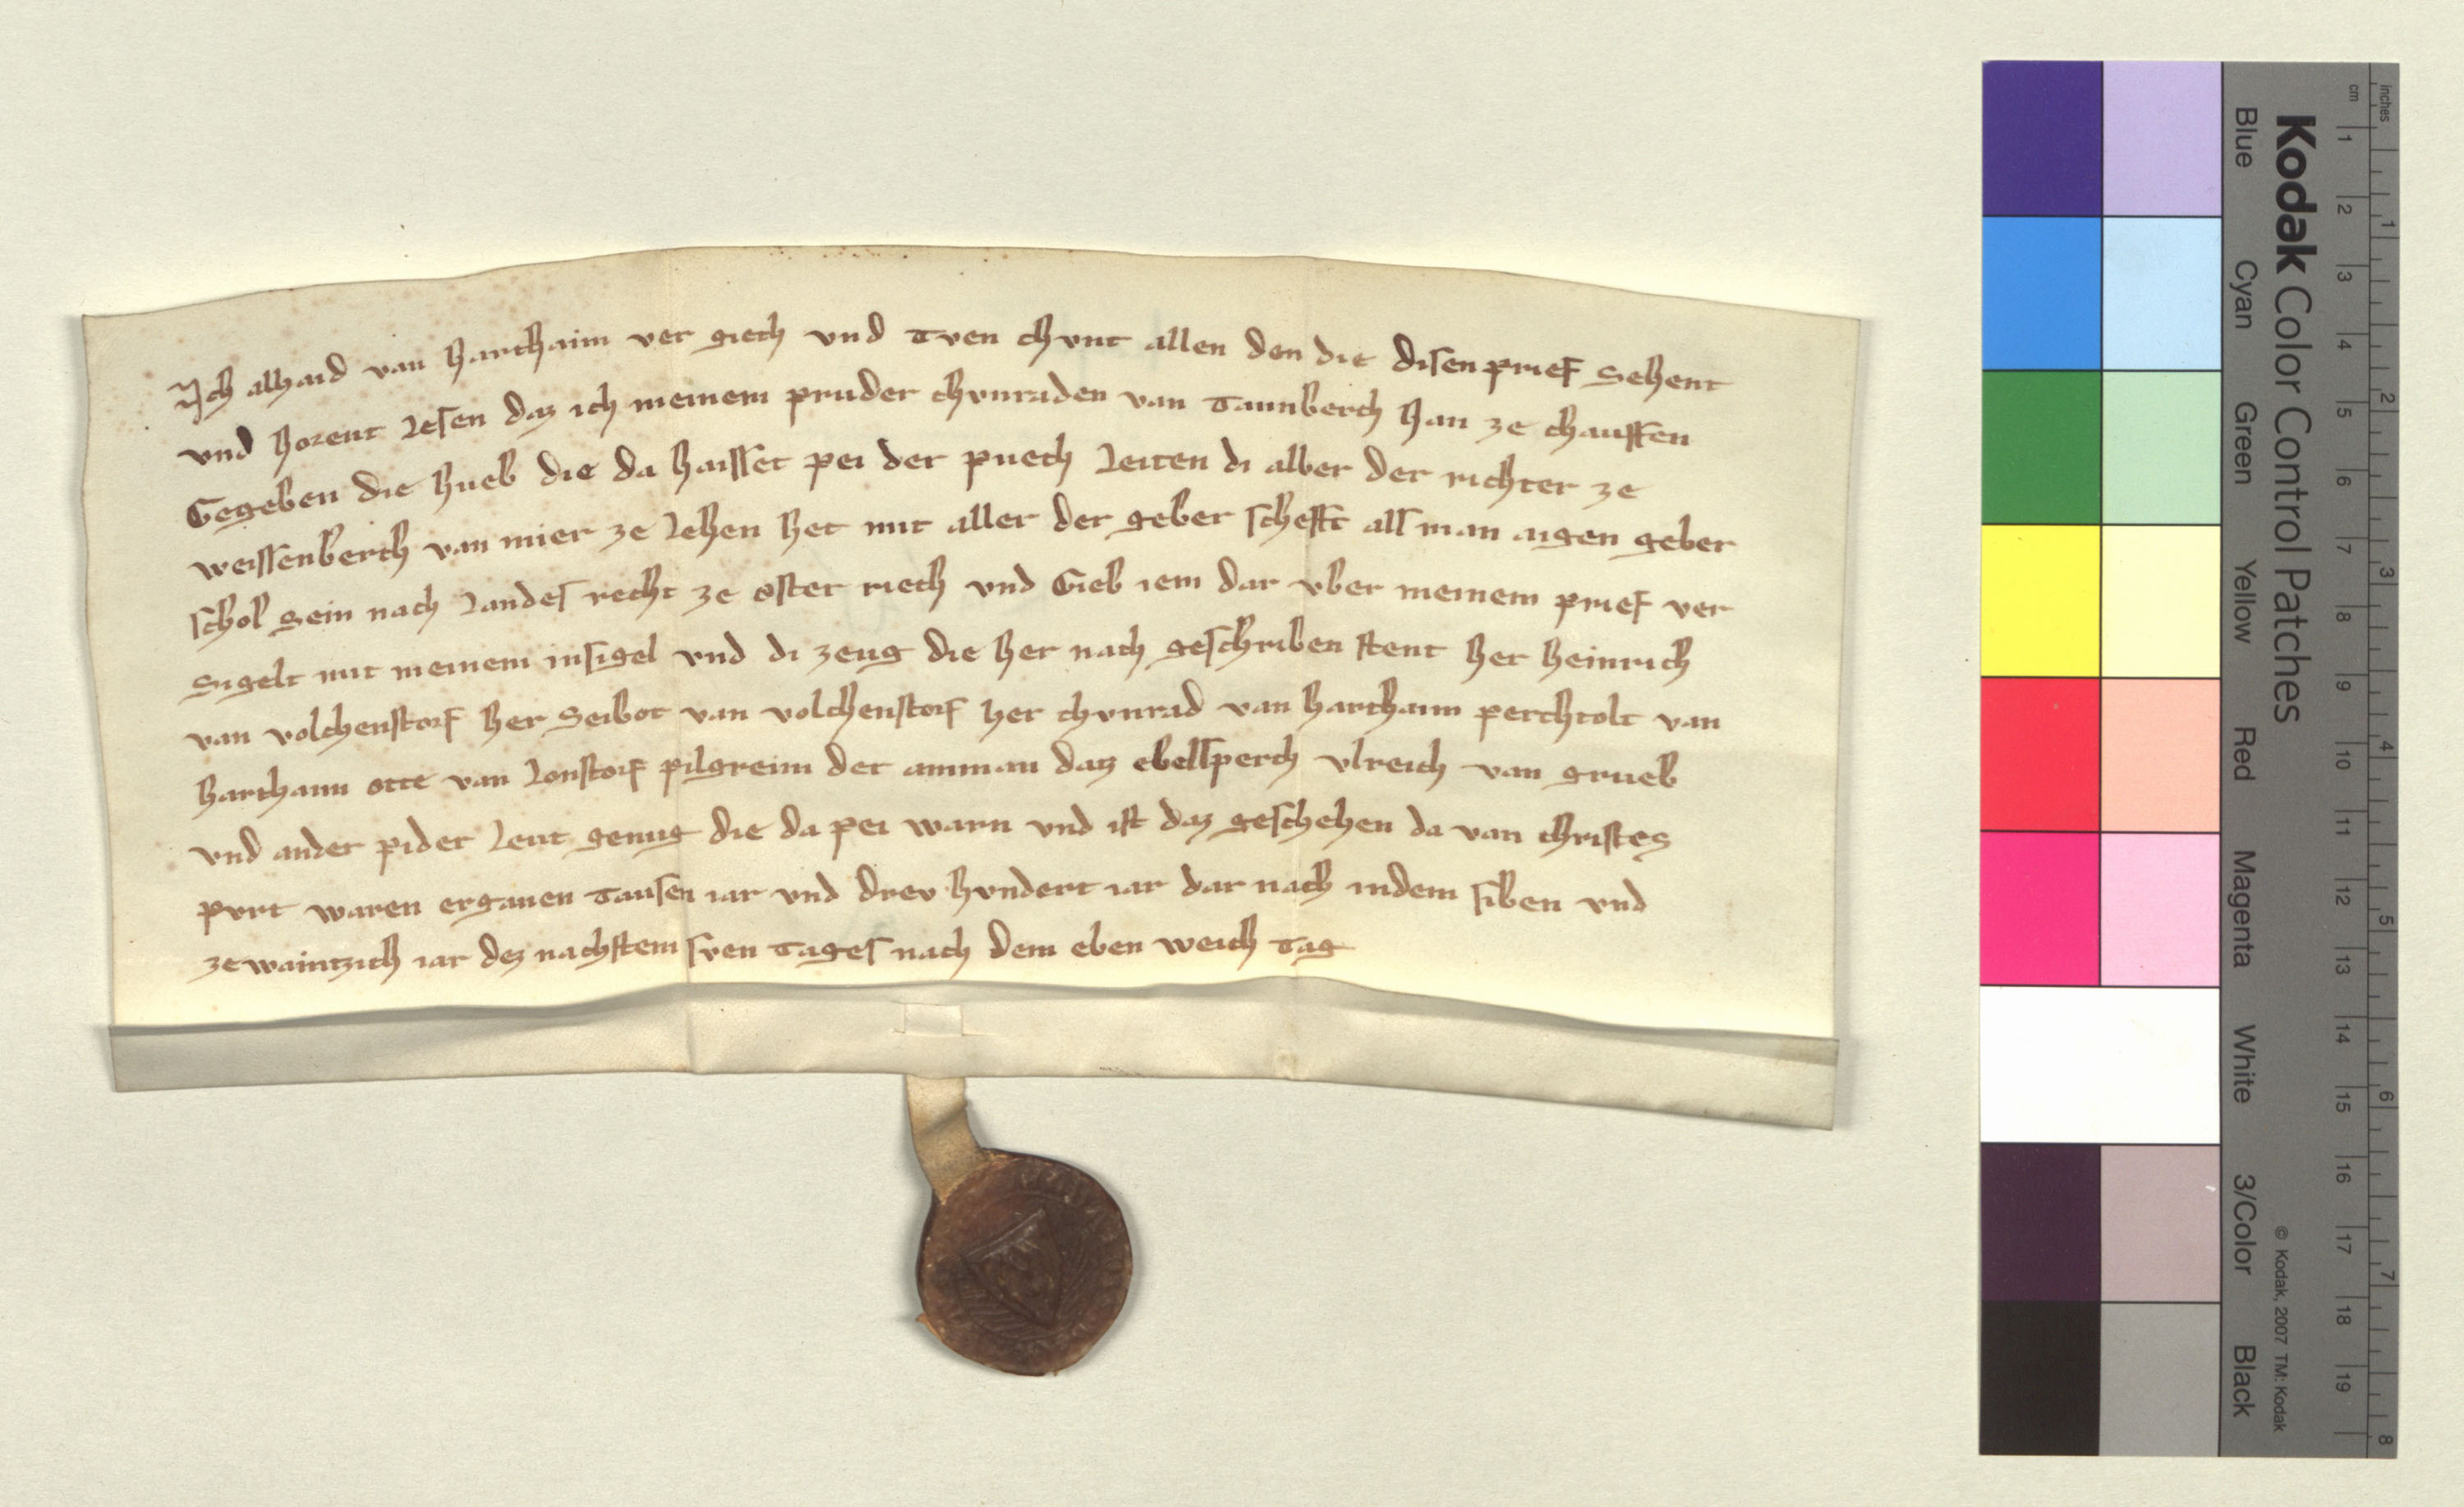 Ich alhaid van harthaim ver giech vnd tven chvnt allen den die disen prief sehent
vnd horent lesen daz ich meinem pruder chvnraden van tannberch han ze chauffen
Gegeben die hueb die da haisset pei der puech leiten di alber der richter ze
weissenberch van mier ze lehen het mit aller der geber scheft als man aigen geber
schol sein nach landes recht ze oster riech vnd Gieb iem dar vber meinem prief ver
sigelt mit meinem insigel vnd di zeug die her nach geschriben stent her heinrich
van volchenstorf her seibot van volchenstorf her chvnrad van harthaim perchtolt van
harthaim otte van lonstorf pilgreim der amman datz ebelsperch vlreich van grueb
vnd ander pider leut genug die da pei warn vnd ist daz geschehen da van christes
pvrt waren erganen tausen iar vnd drev hvndert iar dar nach indem siben vnd
zewaintzich iar dez nachstem sven tages nach dem eben weich tag
Kodak Color Control Patches
© Kodak, 2007 TM: Kodak
Blue Cyan Green Yellow Red Magenta White 3/Color Black
cm 1 2 3 4 5 6 7 8 9 10 11 12 13 14 15 16 17 18 19
inches 1 2 3 4 5 6 7 8